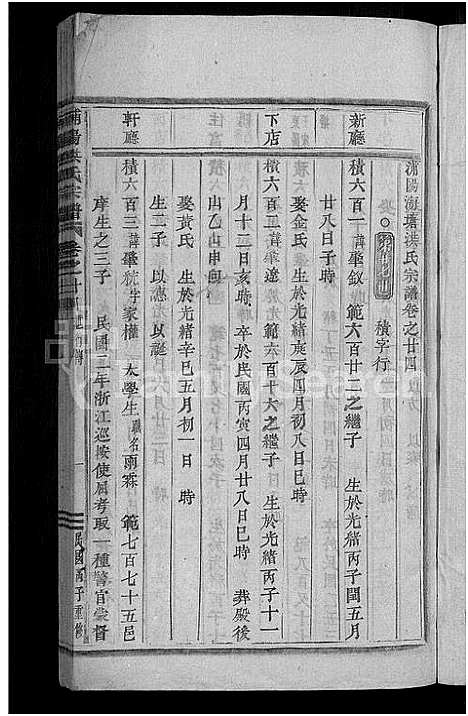 浦陽海塘洪氏宗譜卷之廿四
積字行
新廳
積六百一 諱肇釵 範六百廿二之繼子 生於光緒丙子閏五月
廿八日子時
娶金氏 生於光緒庚辰四月初八日巳時
下店
積六百二 諱肇遼 範六百十六之繼子 生於光緒丙子十一
月十二日亥時 卒於民國丙寅四月廿八日巳時 葬殿後
山乙山申向
娶黃氏 生於光緒辛巳五月初一日 時
生二子 以惠 以誕
軒廳
積六百三 諱肇統 字家權 太學生 職名雨霖 範七百七十五邑
庠生之三子 民國二年浙江巡按使屈考取一種警官蒙督
浦陽洪氏宗譜 卷之廿四
一
民國丙子重修